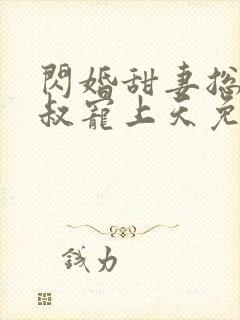 閃婚甜妻総
叔寵上天免
錢力